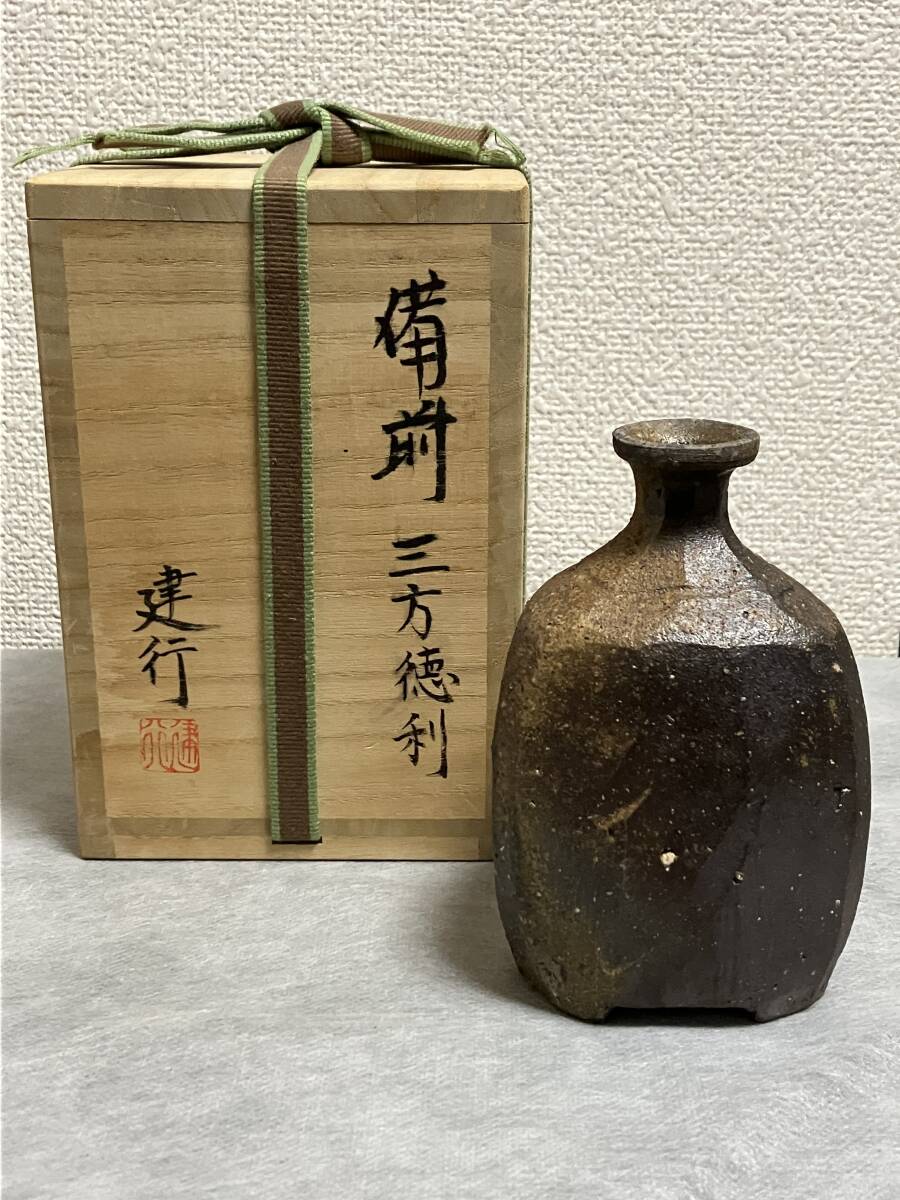 備前 三方徳利
建行
建行